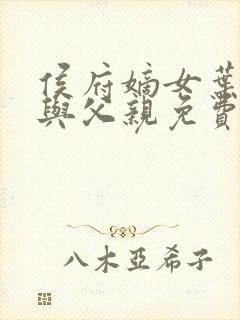 侯府嫡女葉
與父親免費
八木亞希子